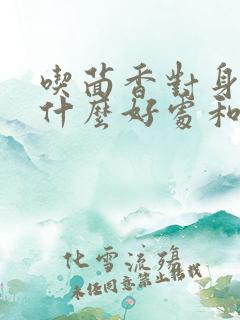 喫茴香對身
什麼好處和
化雪流殤
未經同意禁止轉載